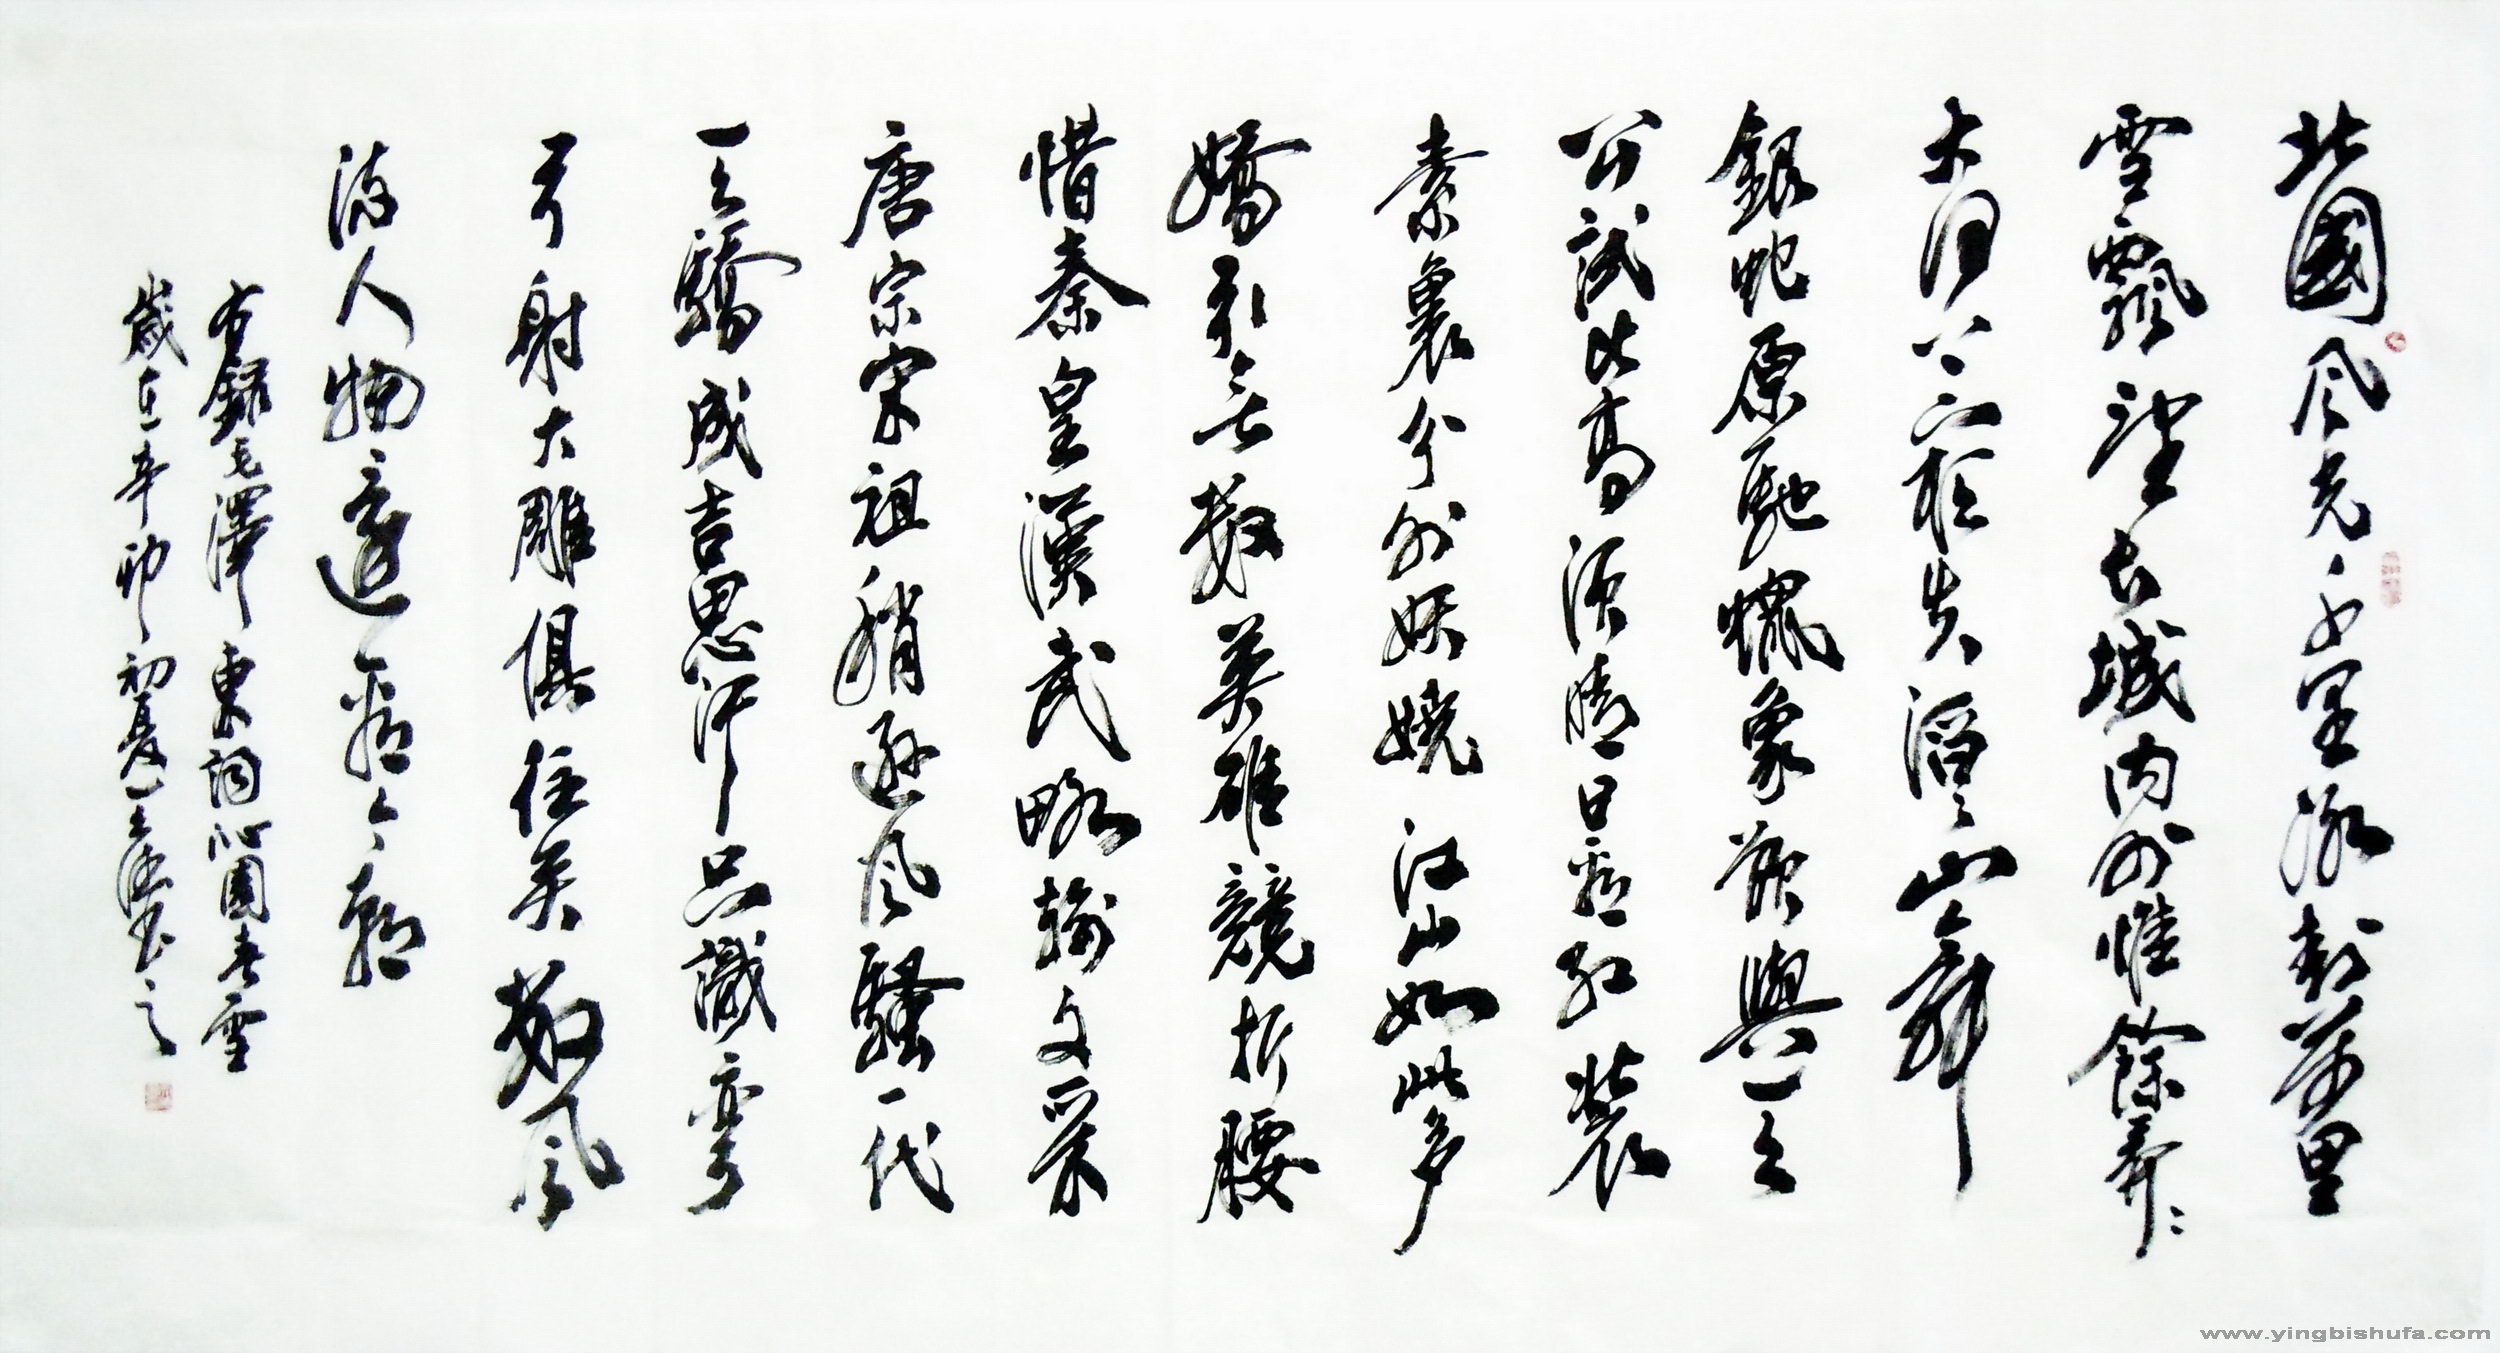 北國風光千里冰封萬里
雪飄望長城內外惟餘莽〻
大河上下頓失滔〻山舞
銀蛇原馳蠟象欲與天
公試比高須晴日看紅裝
素裹分外妖嬈江山如此多
嬌引無數英雄競折腰
惜秦皇漢武略輸文采
唐宗宋祖稍遜風騷一代
天驕成吉思汗只識彎
弓射大雕俱往矣數風
流人物還看今朝
右錄毛澤東詞沁園春雪
歲在辛卯初夏王書之
www.yingbishufa.com